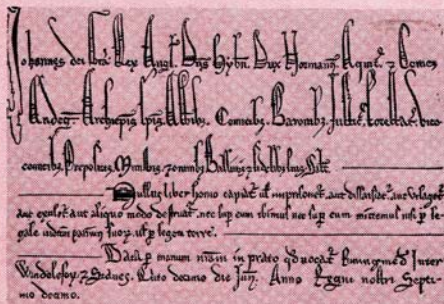 Johannes dei gra Rex Angl. Dns Hybn. Dux Normann. Aquit. & Comes
Andeg. Archiepis Epis Abbibz. Comitibz. Baronibz. Justic. forestar. vice
comitibz. Prepositis. Ministris. & omnibz Ballivis & fidelibus suis Salt.
Nullus liber homo capiat ul imprisonet. aut dissaisiat. aut utlaget
aut exulet. aut aliquo modo destruat. nec sup eum ibimus nec sup eum mittemus nisi p le
gale judicium parium suorum ul p legem terre.
Data p manum nram in prato qd vocat Runingmed Inter
Windelesor & Stanes. Quinto decimo die Jun. Anno Regni nostri Septi
mo decimo.